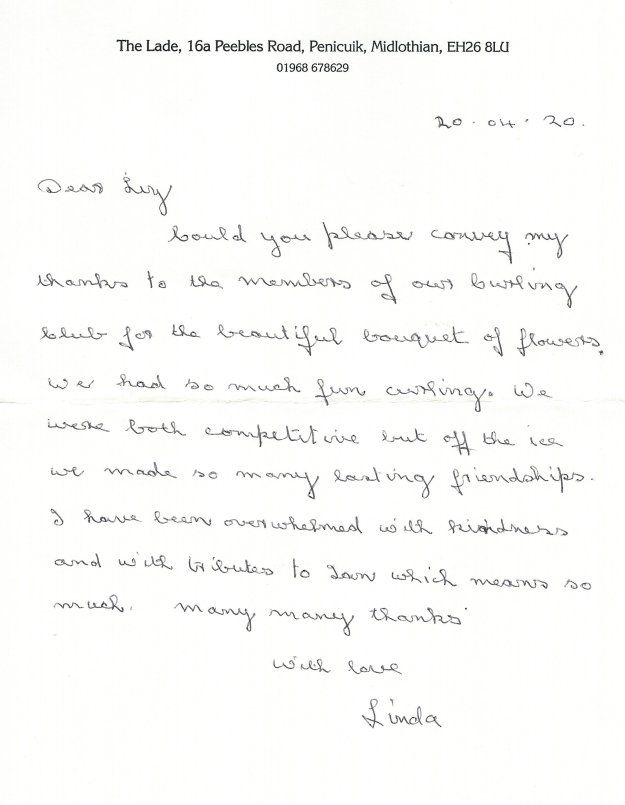 The Lade, 16a Peebles Road, Penicuik, Midlothian, EH26 8LU
01968 678629
20.04.20.
Dear Livy
Could you please convey my
thanks to the members of our Curling
Club for the beautiful bouquet of flowers.
We had so much fun curling. We
were both competitive but off the ice
we made so many lasting friendships.
I have been overwhelmed with kindness
and with tributes to Ian which means so
much. Many many thanks
With love
Linda